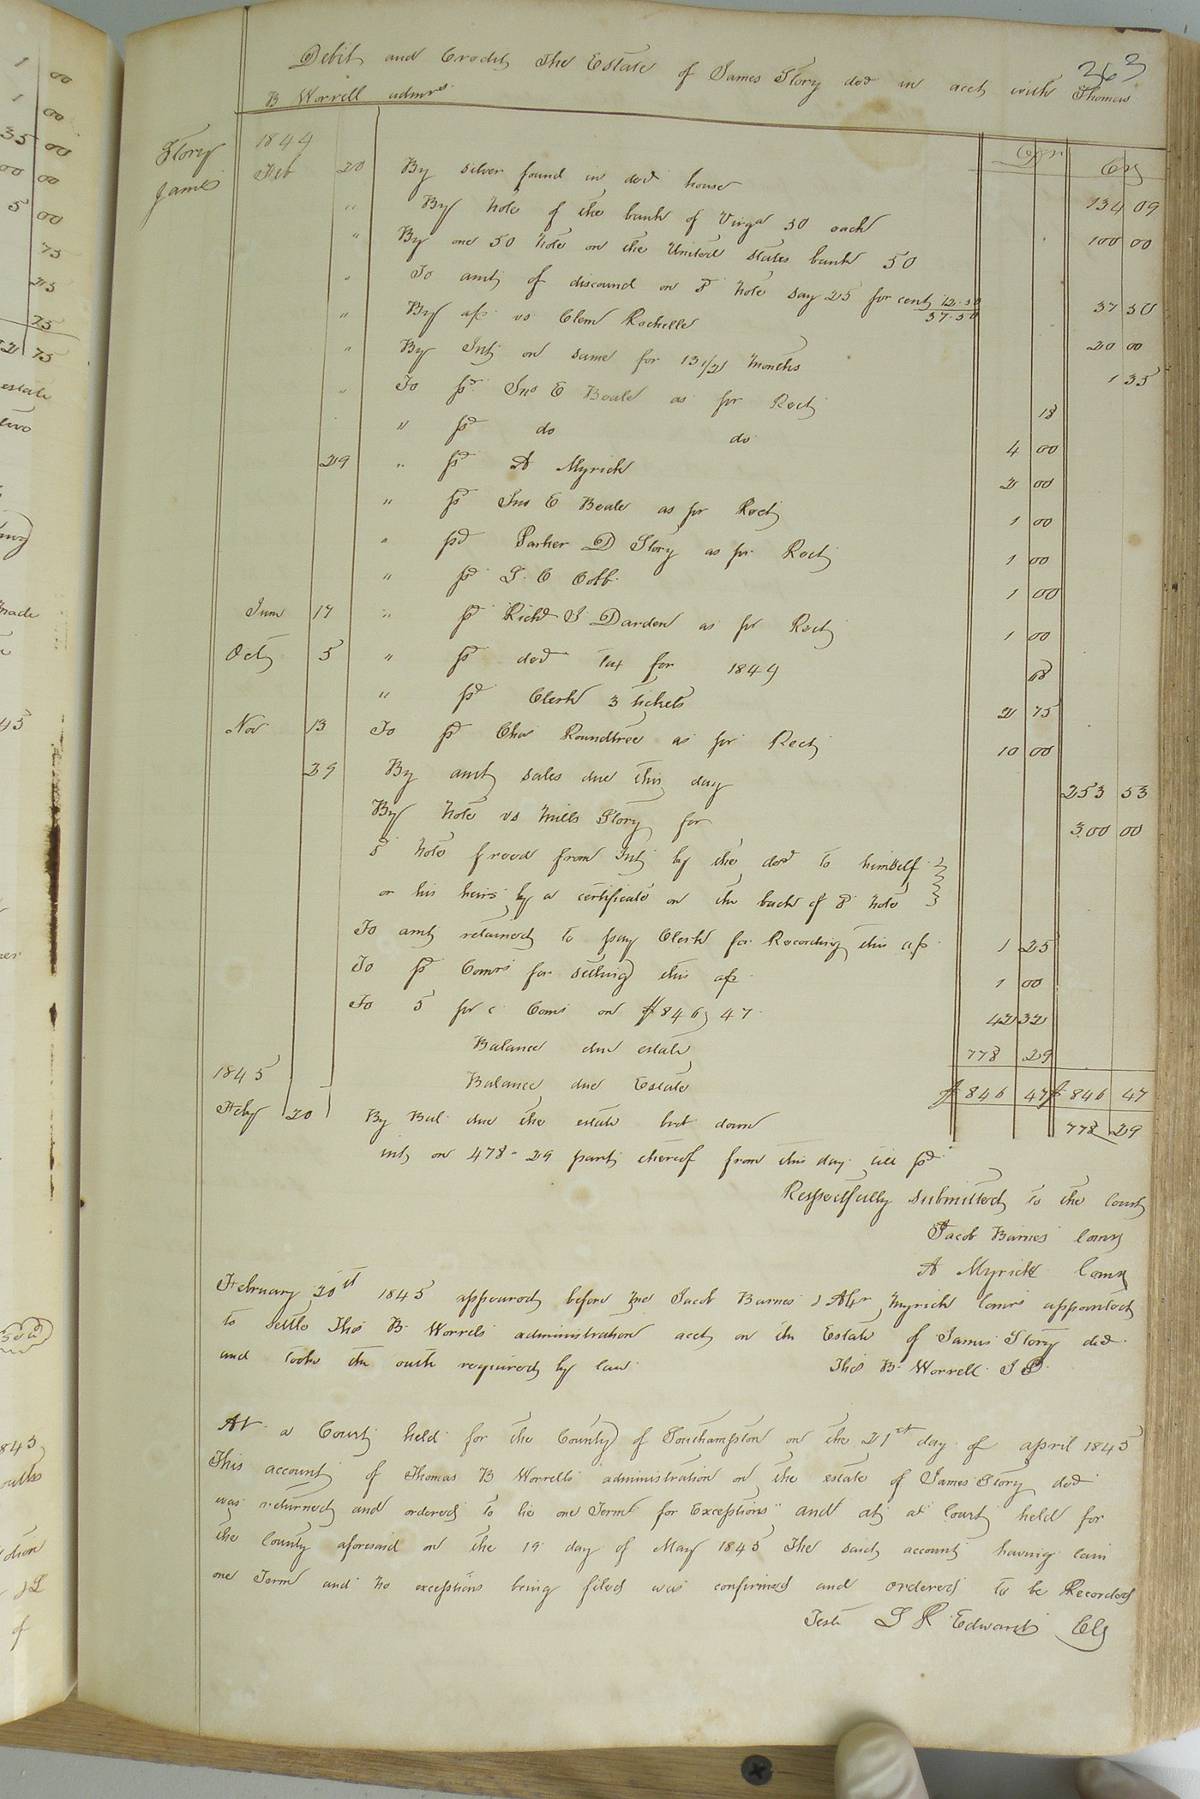 263
Debit and Credit The Estate of James Story decd in acct with Thomas
B Worrell admr
Story
James
1844
Drs
Crs
Feb 20 By silver found in decd house 134 09
" By note of the bank of Virga 50 each 100 00
" By one 50 note on the United States bank 50
" To amt of discound on sd note say 25 per cent 12.50
37.50 37 50
" By a/c vs Clem Rochelle 20 00
" By Int on same for 13 1/2 months 1 35
" To pd Jno E Beale as per Rect 18
" pd do do 4 00
29 " pd A Myrick 2 00
" pd Jno E Beale as per Rect 1 00
" pd Parker D Story as per Rect 1 00
" pd L. C Cobb 1 00
June 17 " pd Richd S Darden as pr Rect 1 00
Oct 5 " pd decd tax for 1844 68
" pd Clerk 3 tickets 2 75
Nov 13 To pd Chas Roundtree as per Rect 10 00
29 By amt sales due this day 253 53
By note vs Mills Story for 300 00
S note freed from Int by the decd to himself
or his heirs by a certificate on the back of sd note
To amt retained to pay Clerk for Recording this a/c 1 25
To pd Comrs for settling this a/c 1 00
To 5 pr c Coms on $846,47 42 32
Balance due estate 778 29
1845
Balance due Estate $846 47 $846 47
Feby 20 By Bal due the estate brt down 778 29
int on 478.29 part thereof from this day till pd
Respectfully submitted to the Court
Jacob Barnes Comr
A Myrick Comr
February 20st 1845 appeared before me Jacob Barnes & Alx Myrick Comrs appointed
to settle Thos B Worrels administration acct on the Estate of James Story decd
and took the oath required by law Thos B Worrell J P
At a Court held for the County of Southampton on the 21st day of April 1845
This account of Thomas B Worrells administration on the estate of James Story decd
was returned and ordered to lie one Term for Exceptions" and at a Court held for
the County aforesaid on the 19 day of May 1845 The said account having lain
one Term and no exceptions being filed was confirmed and ordered to be Recorded
Teste L R Edwards Clk